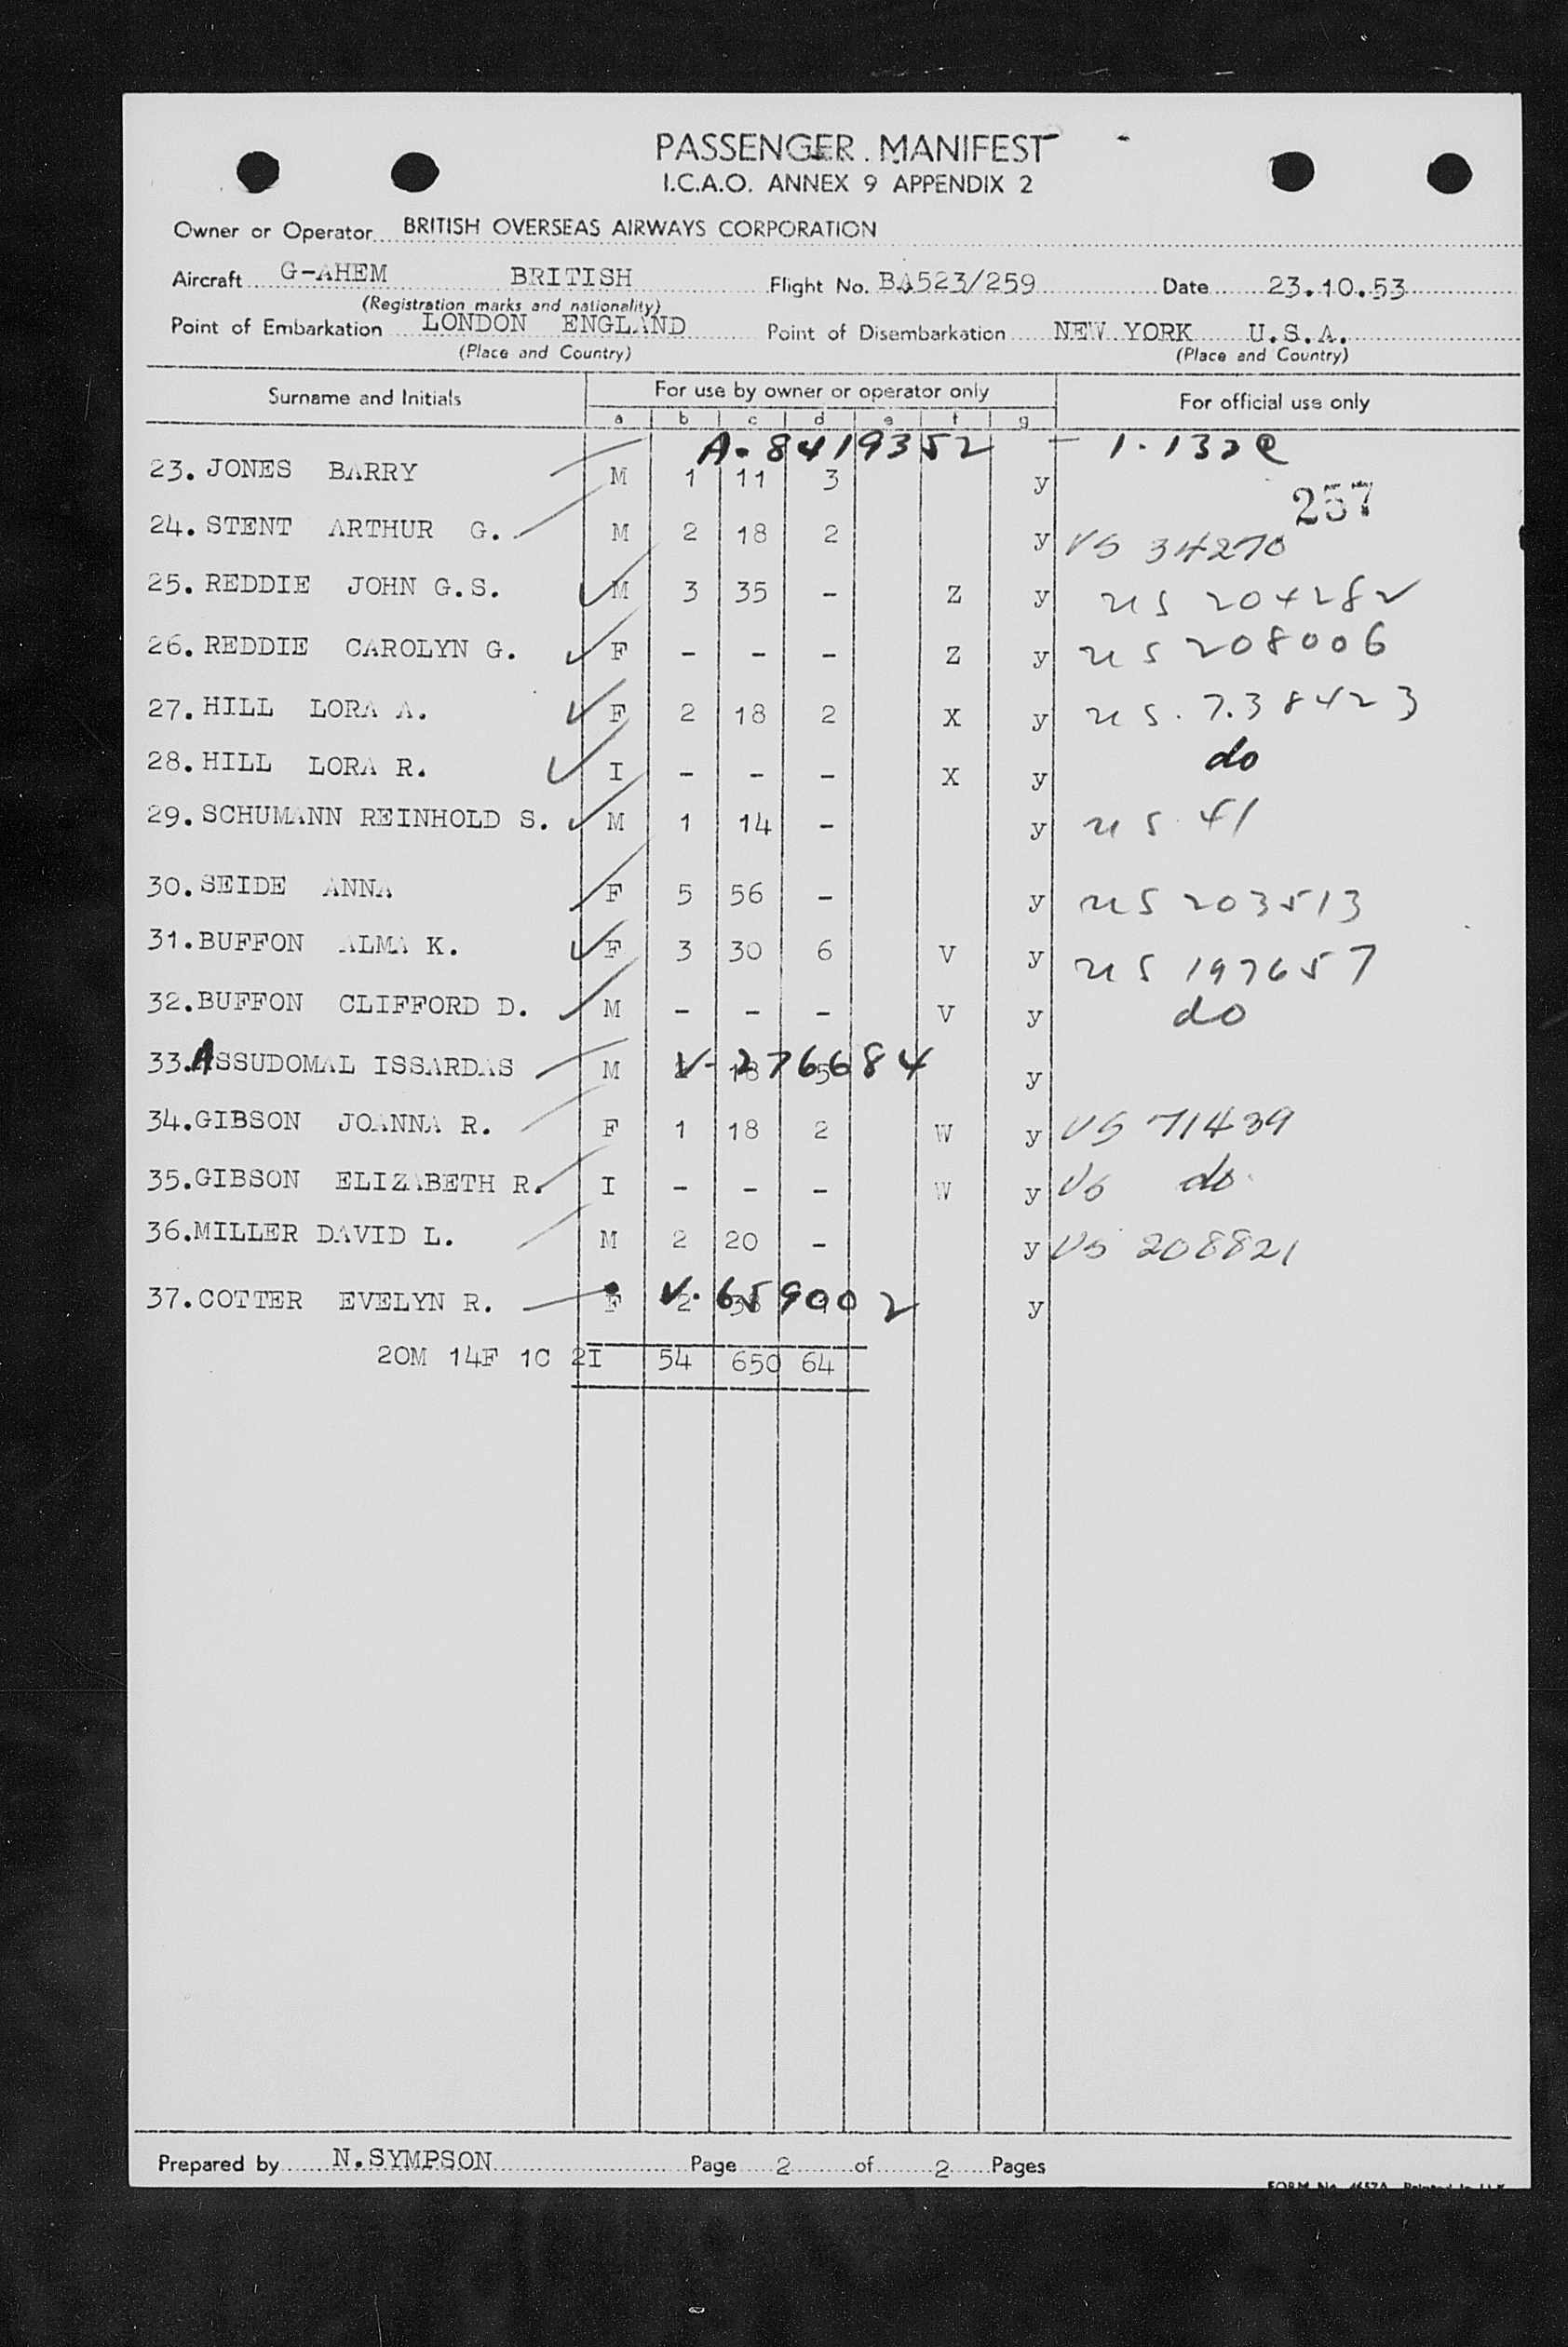 PASSENGER MANIFEST
I.C.A.O. ANNEX 9 APPENDIX 2
Owner or Operator BRITISH OVERSEAS AIRWAYS CORPORATION
Aircraft G-AHEM BRITISH Flight No. BA523/259 Date 23.10.53
(Registration marks and nationality)
Point of Embarkation LONDON ENGLAND Point of Disembarkation NEW YORK U.S.A.
(Place and Country) (Place and Country)
Surname and Initials For use by owner or operator only For official use only
a b c d e f g
A-8419352 - 1.132
23. JONES BARRY M 1 11 3 y
257
24. STENT ARTHUR G. M 2 18 2 y US 34270
25. REDDIE JOHN G.S. M 3 35 - Z y US 204282
26. REDDIE CAROLYN G. F - - - Z y US 208006
27. HILL LORA A. F 2 18 2 X y US. 738423
28. HILL LORA R. I - - - X y do
29. SCHUMANN REINHOLD S. M 1 14 - y US 41
30. SEIDE ANNA F 5 56 - y US 203513
31. BUFFON ALMA K. F 3 30 6 V y US 197657
32. BUFFON CLIFFORD D. M - - - V y do
33. ASSUDOMAL ISSARDAS M 18 5 V-276684 y
34. GIBSON JOANNA R. F 1 18 2 W y US 71439
35. GIBSON ELIZABETH R. I - - - W y US do
36. MILLER DAVID L. M 2 20 - y US 208821
37. COTTER EVELYN R. F 2 V-659002 y
20M 14F 1C 2I 54 650 64
Prepared by N.SYMPSON Page 2 of 2 Pages
FORM No. 4657A Printed in U.K.